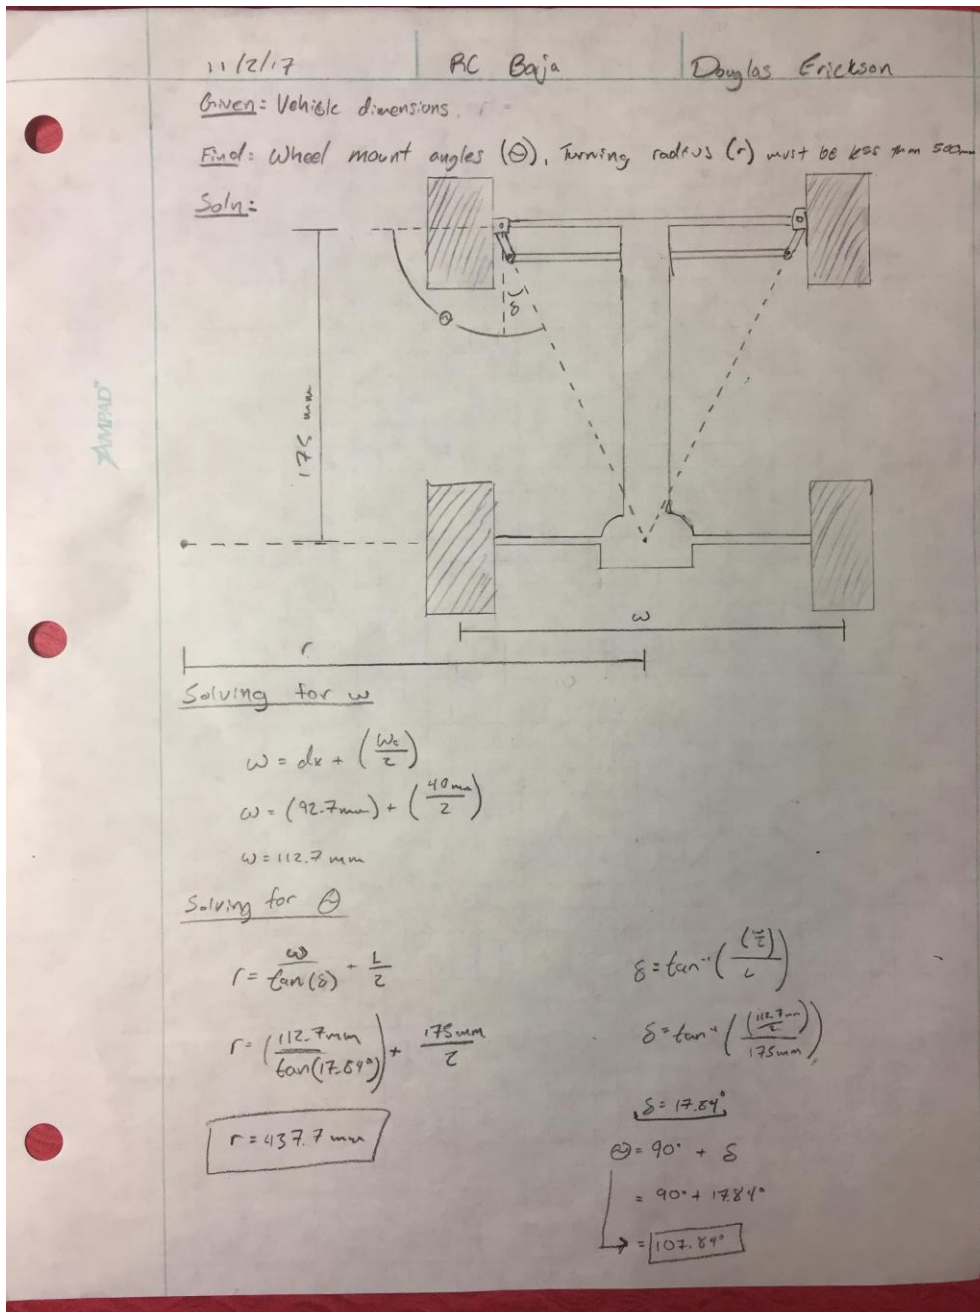 11/2/17 RC Baja Douglas Erickson
Given: Vehicle dimensions.
Find: Wheel mount angles (Θ), Turning radius (r) must be less than 500mm
Soln:
Θ
δ
175 mm
AMPAD™
ω
r
Solving for ω
ω = dx + (Wc/2)
ω = (92.7mm) + (40mm/2)
ω = 112.7 mm
Solving for Θ
r = ω/tan(δ) + L/2
r = (112.7mm/tan(17.84°)) + 175mm/2
r = 437.7 mm
δ = tan⁻¹((w/2)/L)
δ = tan⁻¹((112.7mm/2)/175mm)
δ = 17.84°
Θ = 90° + δ
= 90° + 17.84°
= 107.84°